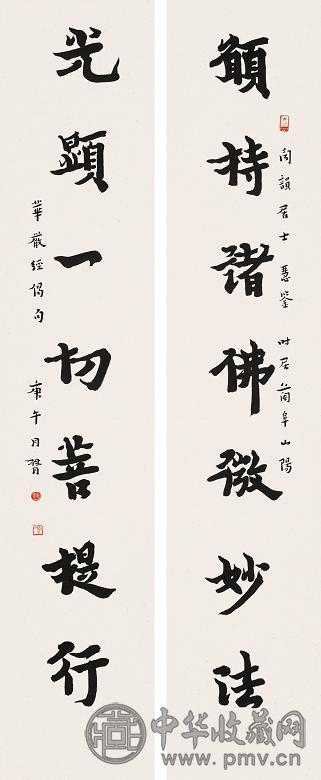 願持諸佛微妙法
韻居士 慧鑒 时居阜山陽
光顯一切菩提行
華嚴經偈句
庚午月臂
中华收藏网
www.pmv.cn